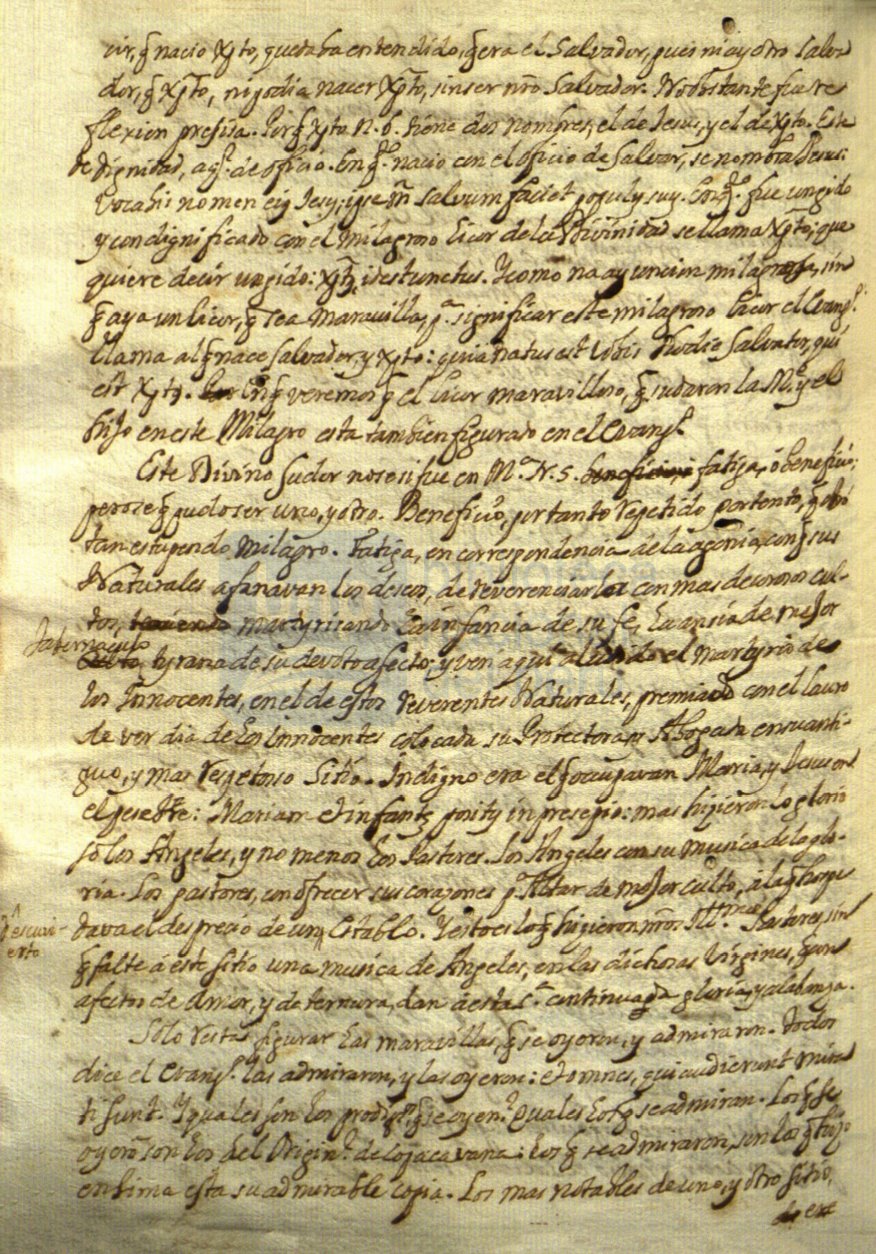 cir, q̃ nacio Xp̃to, quedaba entendido, q̃ era el Salvador, pues ni ay otro Salva
dor, q̃ Xp̃to, ni podia nacer Xp̃to, sin ser nr̃o Salvador. No obstante fue re
flexion presisa. Porq̃ Xp̃to N. B. tiene dos nombres, el de Jesus, y el de Xp̃to. Este
de dignidad, aq.l de oficio. En q.to nacio con el oficio de Salvar, se nombra Jesus:
Vocabis nomen eiꝰ Jesu; ipse en̄ salvum faciet populũ suũ. En q.to fue ungido
y condignificado con el milagroso licor de la Divinidad se llama Xp̃to, que
quiere decir ungido: Xp̃tꝰ, id est unctus. Y como no ay uncion milagrosa, sin
q̃ aya un licor, q̃ sea maravilla, p.a significar este milagroso licor el Evang.o
llama al q̃ nace Salvador, y Xp̃to: quia natus est vobis hodie Salvator, qui
est Xp̃tꝰ. En q̃ veremos q̃ el licor maravilloso, q̃ sudaron la M.e y el
hijo en este Milagro esta tambien figurado en el Evang.o
Este Divino sudor no se si fue en M.a N. S. beneficio, i fatiga, ò beneficio;
pero se q̃ pudo ser uno, y otro. Beneficio, por tanto repetido portento, q̃ obò
tan estupendo milagro. Fatiga, en correspondencia de la agonia, con q̃ sus
Naturales afanavan los deseos, de reverenciarlos con mas decorosos cul-
tos, martyrisando la infancia de su fe, la ansia de mejor
Tabernaculo
tyrana de su devoto afecto; y ven aqui aludido el martyrio de
los Innocentes, en el de estos reverentes Naturales, premiado con el lauro
de ver dia de los Innocentes colocada su Protectora, y Abogada en su anti-
guo, y mas respetoso Sitio. Indigno era el q̃ ocupavan Maria, y Jesus en
el pesebre: Mariam et infantẽ positũ in presepio: mas hijieronlo glorio
so los Angeles, y no menos los Pastores. Los Angeles con su musica de la glo-
ria. Los pastores, con ofrecer sus corazones p.a Altar de mejor culto, à la q̃ hospe
dava el desprecio de un Establo. Y esto es lo q̃ hijieron nr̃os Ill.mos Pastores, sin
descuvi-
erto
q̃ falte à este sitio una musica de Angeles, en las dichosas Virgines, q̃ con
afectos de Amor, y de ternura, dan à esta S.a continuada gloria, y alabanza.
Solo resta figurar las maravillas, q̃ se oyeron, y admiraron. Todos
dice el Evang.o las admiraron, y las oyeron: et omnes, qui audierunt mira
ti sunt. Y quales son los prodig.os q̃ se oyen? Quales los q̃ se admiran. Los q̃ se
oyerõ son los del Origin.l de Copacavana: los q̃ se admiraron, son los q̃ hijo
en Lima esta su admirable copia. Los mas notables de uno, y otro sitio,
en